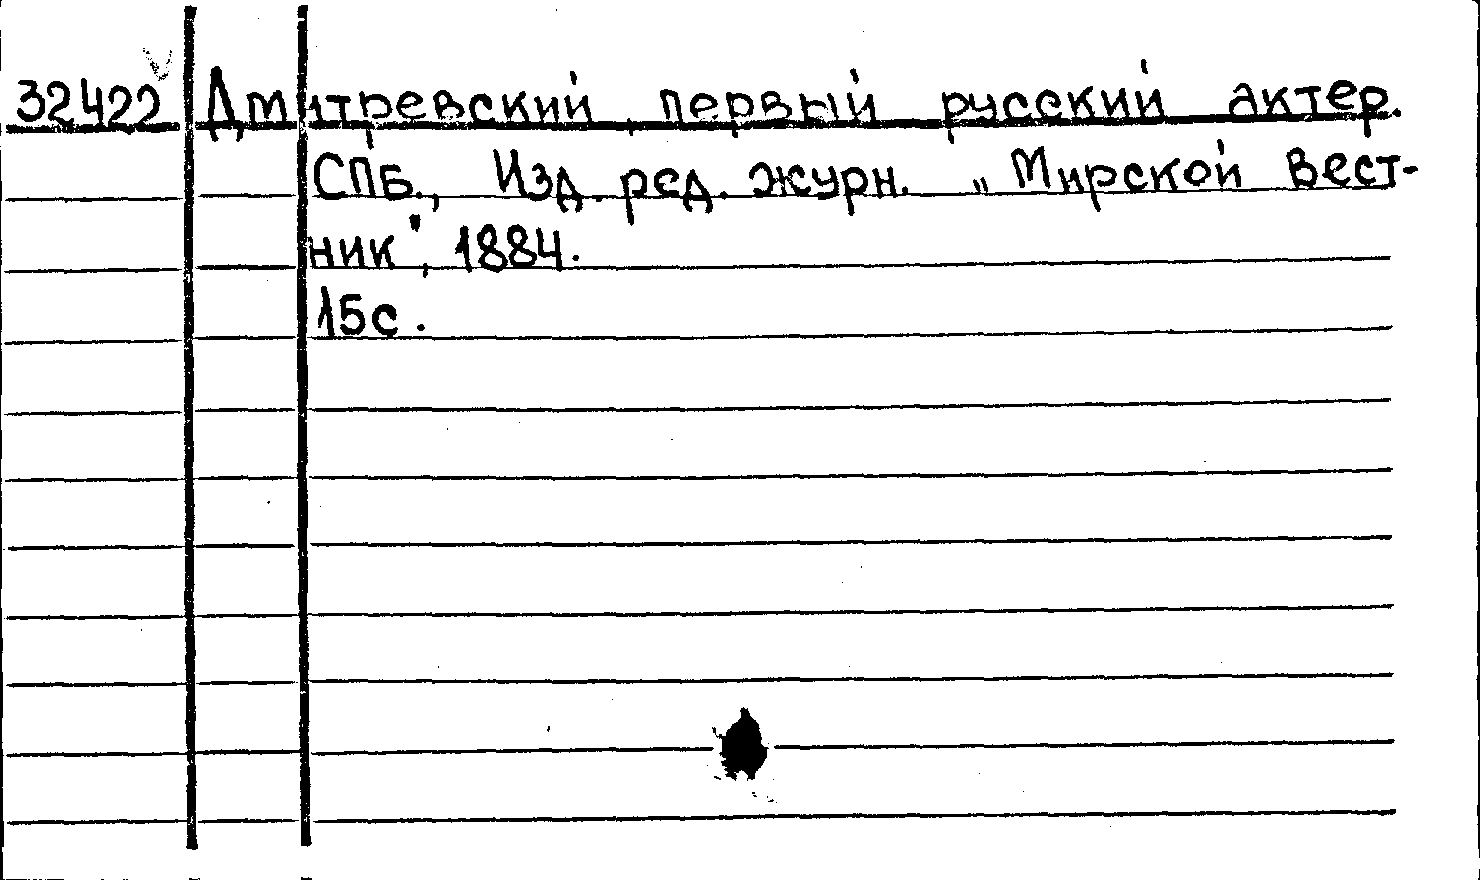 32422 Дмитревский, первый русский актер.
СПБ., Изд. ред. журн. „Мирской Вест-
ник", 1884.
15с.